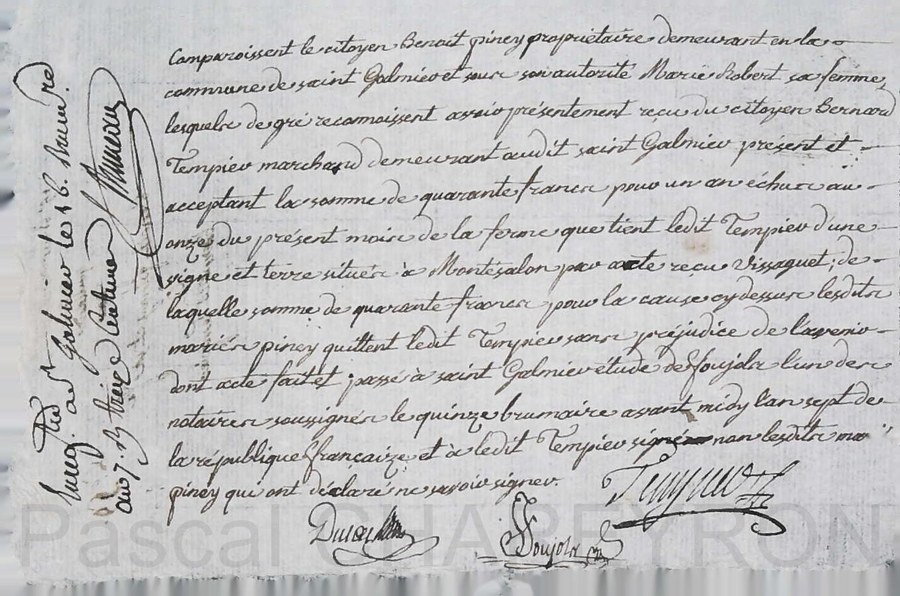 Comparoissent le citoyen Benoit piney propriétaire demeurant en la
commune de saint Galmier et sous son autorité Marie Robert sa femme,
lesquels de gré reconnoissent avoir présentement recu du citoyen Bernard
Tempier marchand demeurant audit saint Galmier présent et
acceptant la somme de quarante francs pour un an échus au
onze du présent mois de la ferme que tient ledit Tempier d'une
vigne et terre situés à Montsalon par acte recu Vissaguet; de
laquelle somme de quarante francs pour la cause cy dessus lesdits
mariés piney quittent ledit Tempier sans préjudice de l'avenir
dont acte fait et passé à saint Galmier étude de ffoujols l'un des
notaires soussignés le quinze brumaire avant midy l'an sept de
la république ffrançaize et à ledit Tempier signé non lesdits ma
piney qui ont déclaré ne savoir signer.
Tempier
ffoujols
Galmier les 16 brum.re
an 7. centimes
Pascal CHAPEYRON